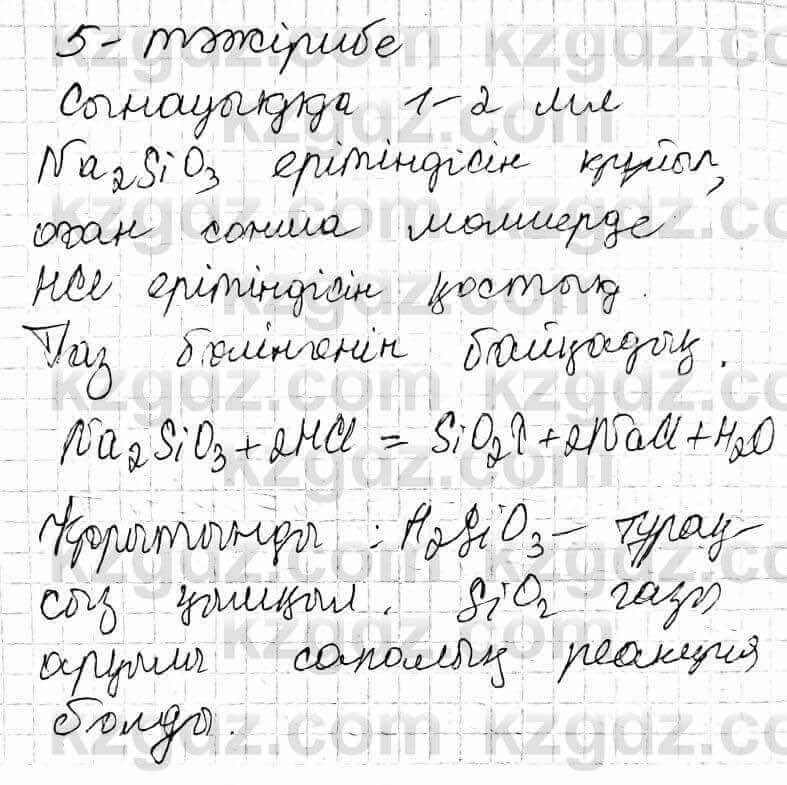 5-тәжірибе
Сынауыққа 1-2 мл
Na₂SiO₃ ерітіндісін құйып,
оған сонша мөлшерде
HCl ерітіндісін қостық.
Газ бөлінгенін байқадық.
Na₂SiO₃+2HCl = SiO₂↑+2NaCl+H₂O
Қорытынды: H₂SiO₃- тұрақ-
сыз қышқыл. SiO₂ газы
арқылы сапалық реакция
болды.
kzgdz.com